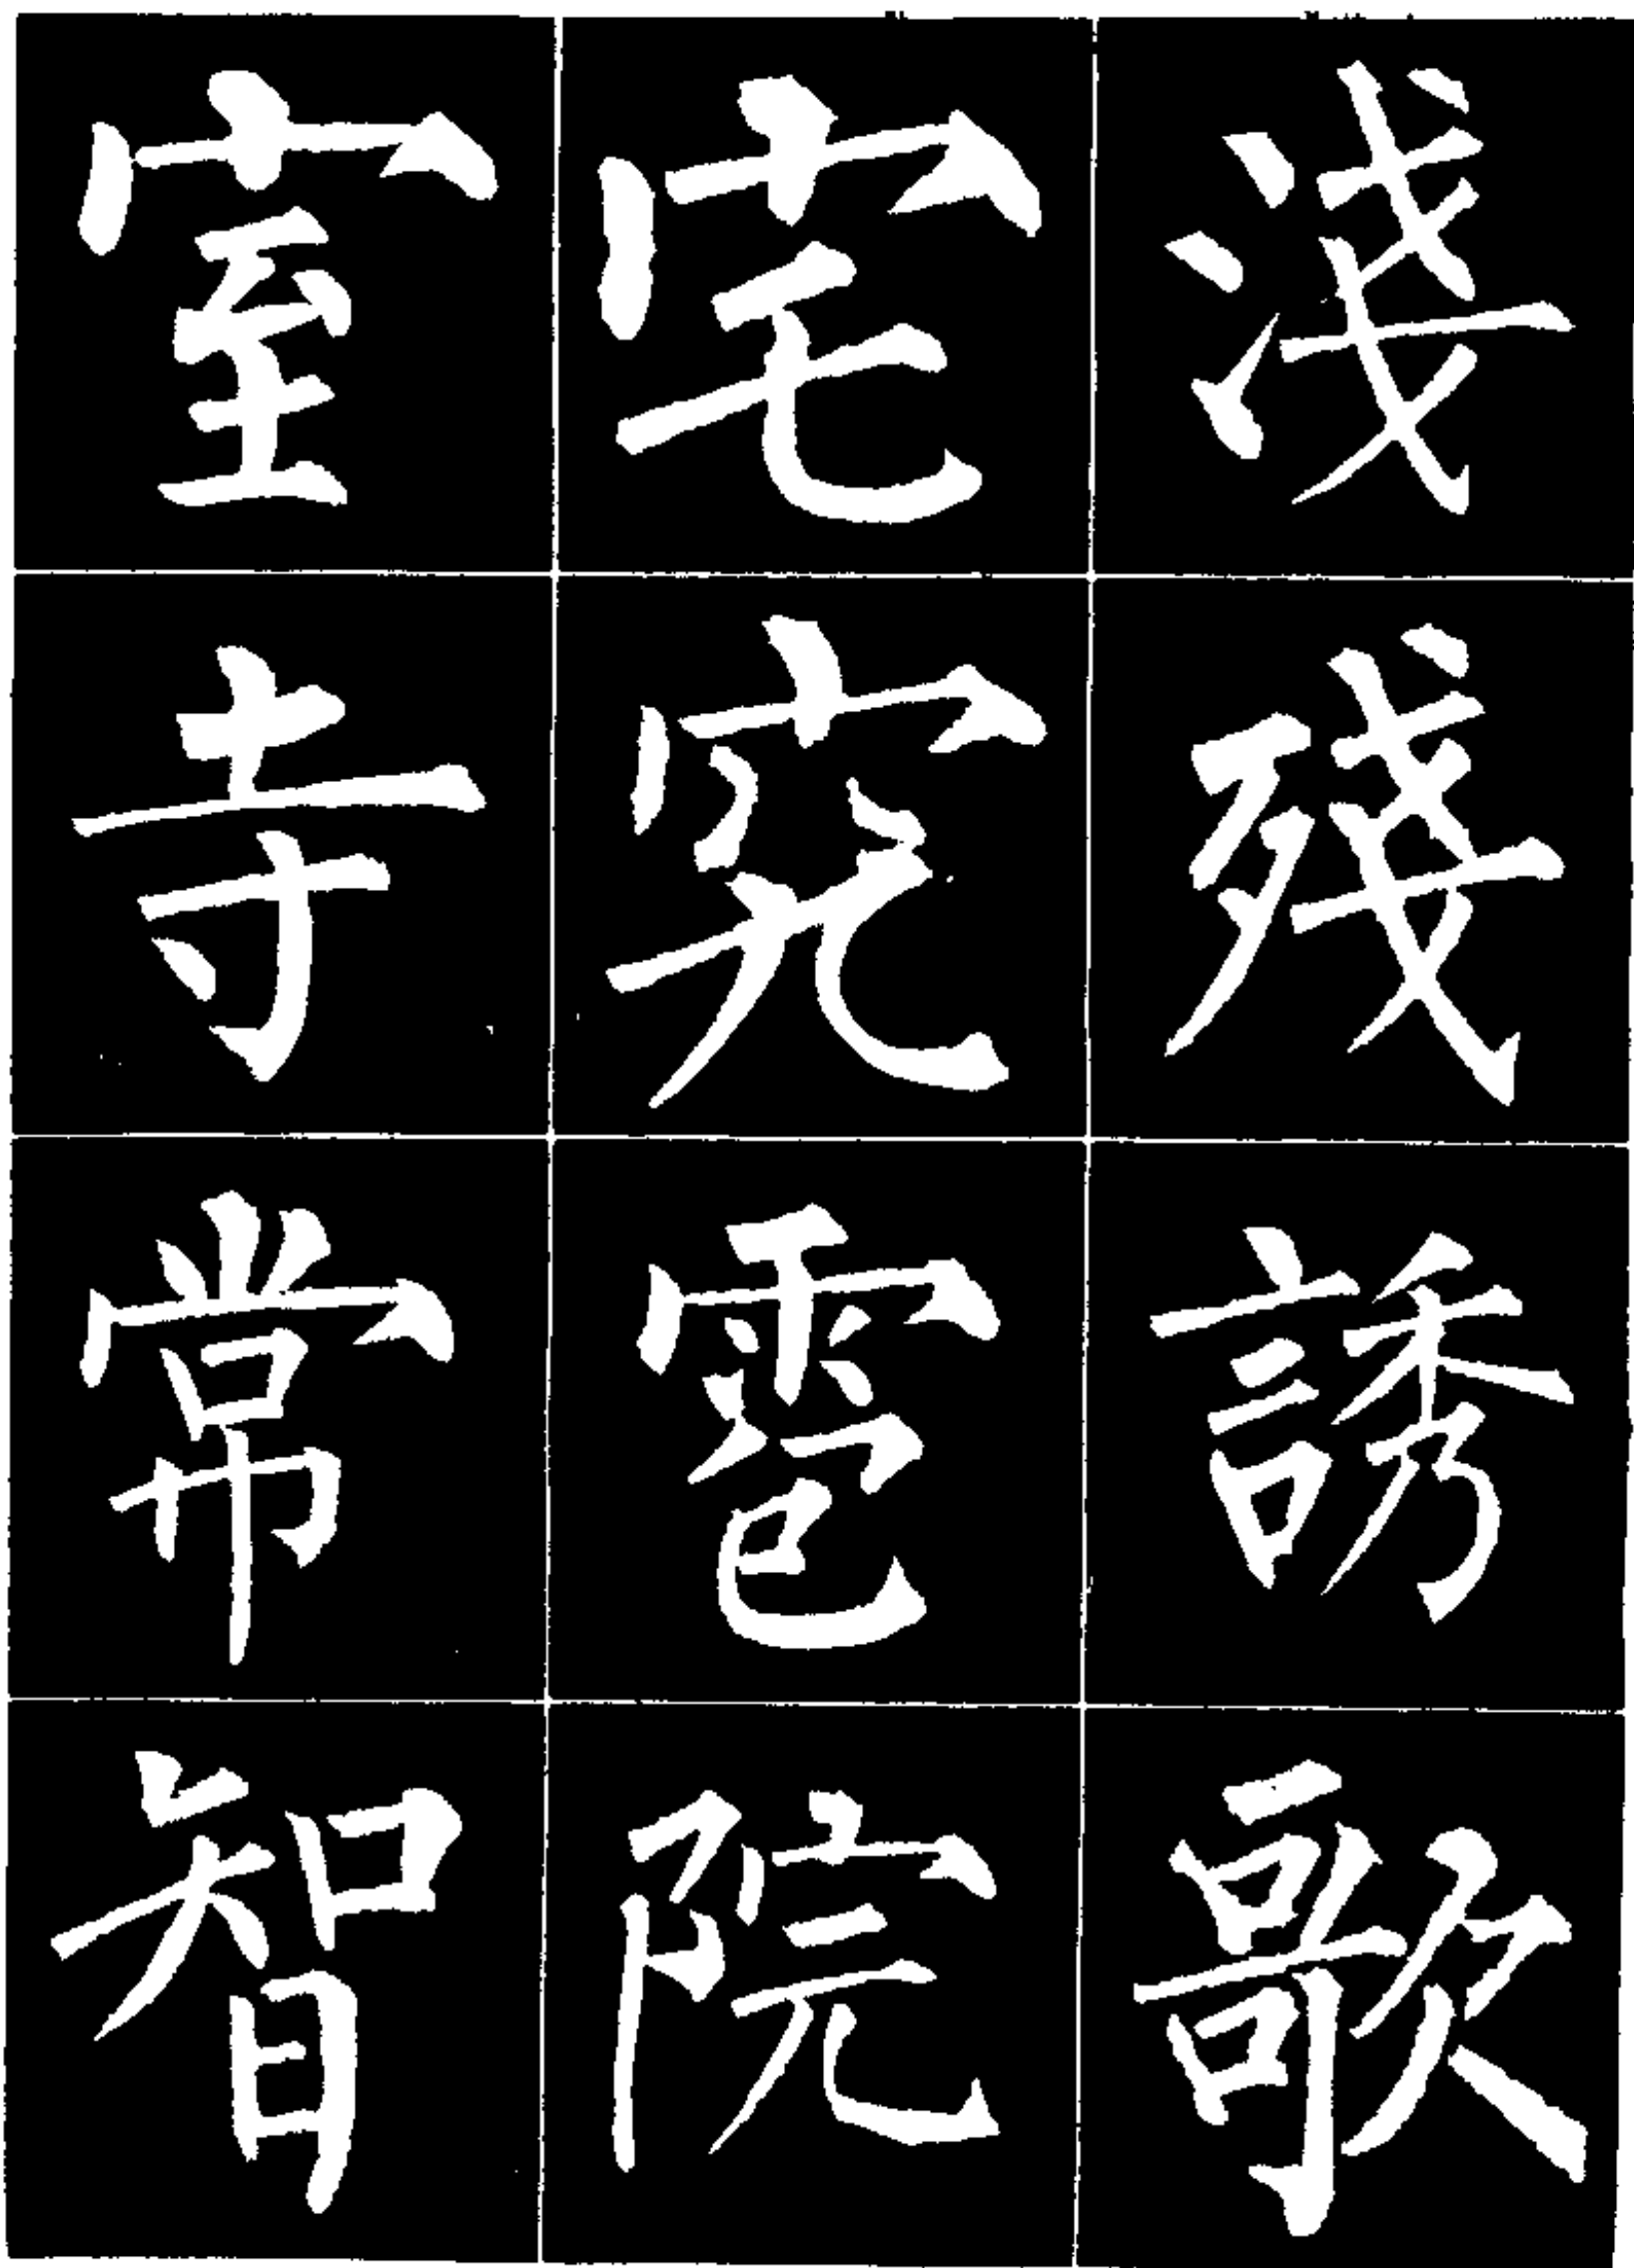 淺殘誘歌
宅究雹院
室寺常智